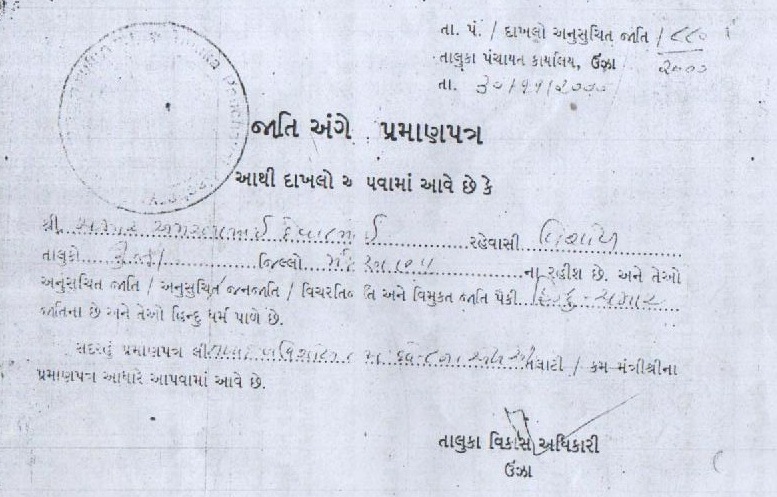 તા. પં. / દાખલો અનુસુચિત જાતિ / ૮૮૦
તાલુકા પંચાયત કાર્યાલય, ઉંઝા ૨૦૦૦
તા. ૩૦/૧૧/૨૦૦૦
જાતિ અંગે પ્રમાણપત્ર
આથી દાખલો આપવામાં આવે છે કે
શ્રી ચમાર અમરતભાઈ દેવાભાઈ રહેવાસી
તાલુકો ઉંઝા જિલ્લો મહેસાણા ના રહીશ છે. અને તેઓ
અનુસુચિત જાતિ / અનુસુચિત જનજાતિ / વિચરતિ જાતિ અને વિમુક્ત જાતિ પૈકી હિન્દુ-ચમાર
જાતિના છે અને તેઓ હિન્દુ ધર્મ પાળે છે.
સદરહું પ્રમાણપત્ર તલાટી / કમ મંત્રીશ્રીના
પ્રમાણપત્ર આધારે આપવામાં આવે છે.
તાલુકા વિકાસ અધિકારી
ઉંઝા